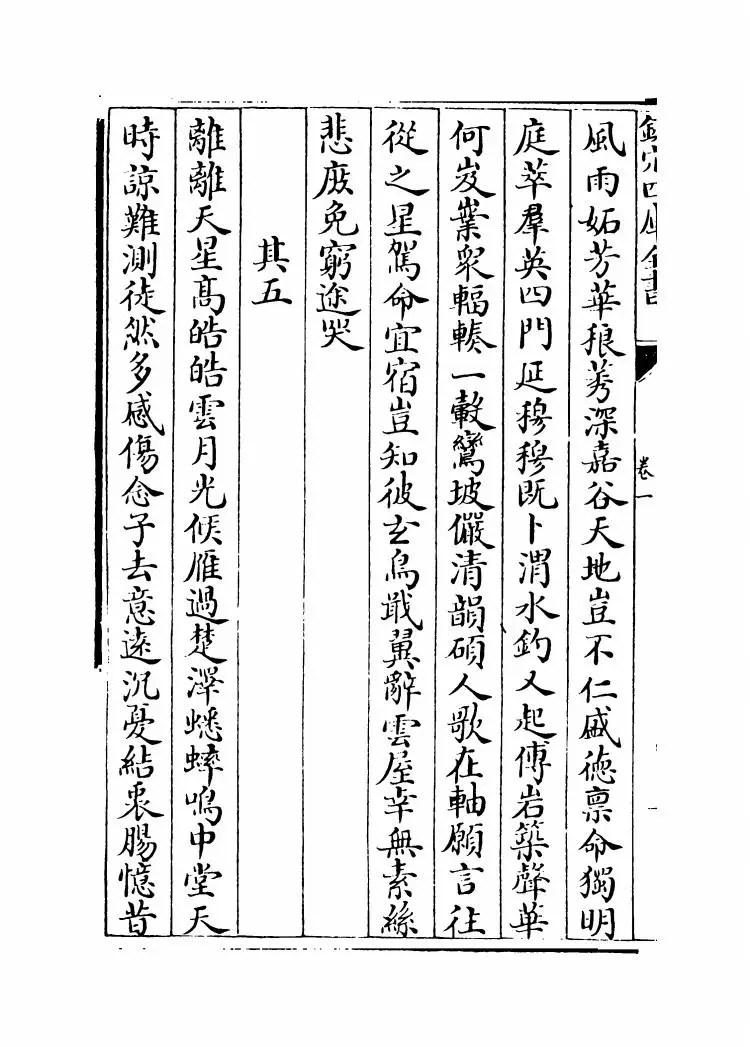 欽定四庫全書
卷一
風雨妬芳華稂莠深嘉谷天地豈不仁盛徳禀命獨明
庭萃羣英四門延穆穆既卜渭水釣又起傅岩築聲華
何岌嶪衆輻輳一轂鸞坡儼清韻碩人歌在軸願言往
從之星駕命宜宿豈知彼玄鳥戢翼辭雲屋幸無素絲
悲庶免窮途哭
其五
離離天星高皓皓雲月光候雁過楚澤蟋蟀鳴中堂天
時諒難測徒然多感傷念子去意逺沉憂結衷腸憶昔